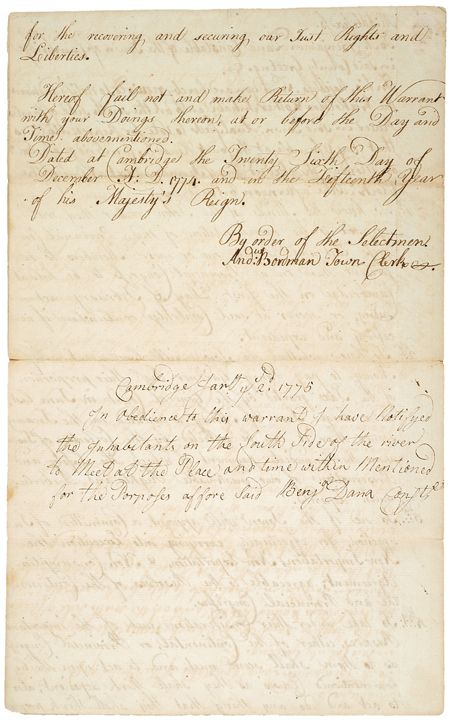 for the recovering and securing our Just Rights and
Liberties.
Hereof fail not and make Return of this Warrant
with your Doings thereon, at or before the Day and
Time abovementioned.
Dated at Cambridge the Twenty Sixth Day of
December A.D. 1774. and in the Fifteenth Year
of his Majesty's Reign.
By order of the Selectmen
And.w Bordman Town Clerk
Cambridge Jan.y ye 2d. 1775
In obedience to this warrant I have Notifyed
the inhabitants on the South Side of the river
to Meet at the Place and time within Mentioned
for the Porposes affore Said Benj.a Dana Const.e